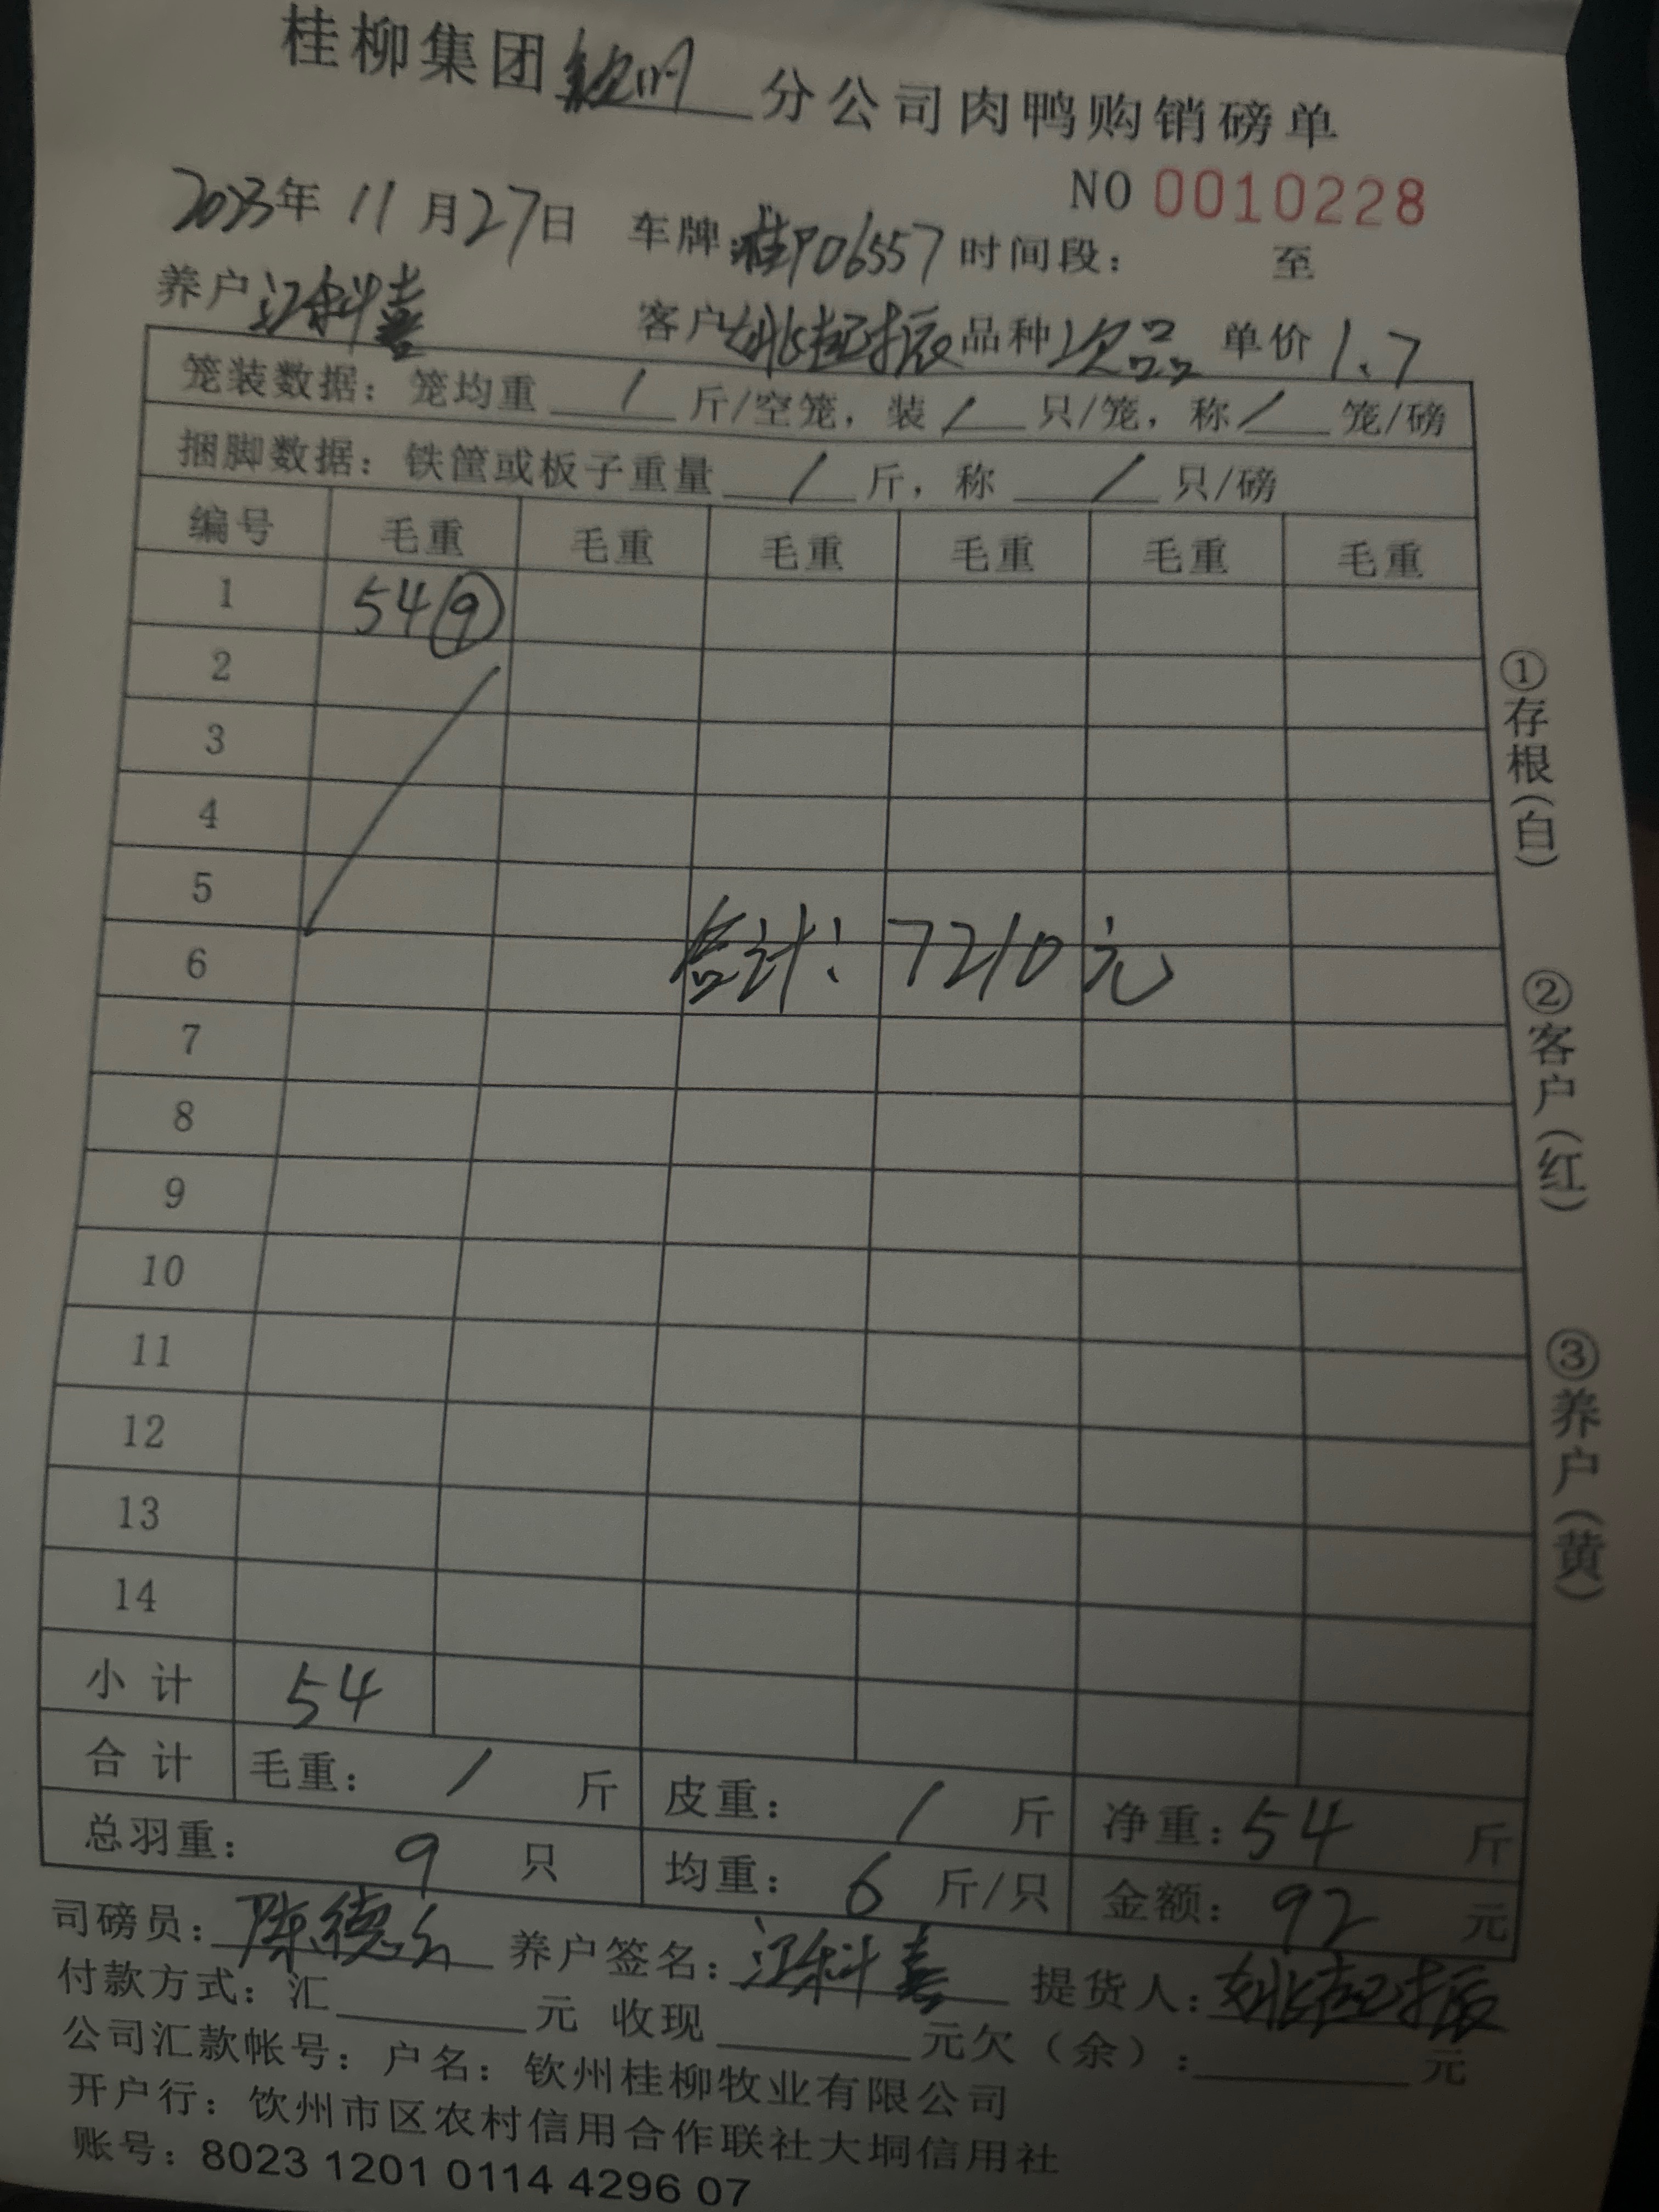 桂柳集团钦州分公司肉鸭购销磅单
NO 0010228
2023年 11 月27日 车牌:桂P06557 时间段: 至
养户 江科喜 客户 姚起振 品种 次品 单价 1.7
笼装数据: 笼均重 / 斤/空笼, 装 / 只/笼, 称 / 笼/磅
捆脚数据: 铁筐或板子重量 / 斤, 称 / 只/磅
编号 毛重 毛重 毛重 毛重 毛重 毛重
1 54⑨
2
3
4
5
6 合计: 7210元
7
8
9
10
11
12
13
14
小计 54
合计 毛重: / 斤 皮重: / 斤 净重: 54 斤
总羽重: 9 只 均重: 6 斤/只 金额: 92 元
司磅员: 陈德 养户签名: 江科喜 提货人: 姚起振
付款方式: 汇 元 收现 元欠(余): 元
公司汇款帐号: 户名: 钦州桂柳牧业有限公司
开户行: 钦州市区农村信用合作联社大垌信用社
账号: 8023 1201 0114 4296 07
①存根(白)
②客户(红)
③养户(黄)